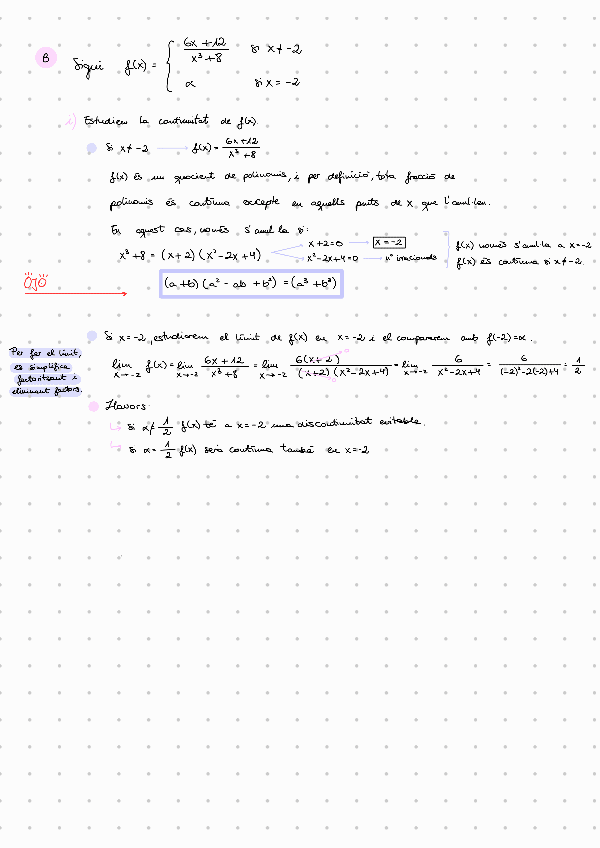 B Sigui f(x) = { (6x+12)/(x³+8) si x≠-2
α si x=-2
i) Estudieu la continuïtat de f(x).
Si x≠-2 f(x) = (6x+12)/(x³+8)
f(x) és un quocient de polinomis, i per definició, tota fracció de
polinomis és contínua excepte en aquells punts de x que l'anul·len.
En aquest cas, només s'anul·la si:
x³+8 = (x+2)(x²-2x+4)
x+2=0 x=-2
x²-2x+4=0 nº irracionals
f(x) només s'anul·la a x=-2
f(x) és contínua si x≠-2.
OJO
(a+b)(a²-ab+b²) = (a³+b³)
Si x=-2, estudiarem el límit de f(x) en x=-2 i el compararem amb f(-2)=α.
Per fer el límit,
es simplifica
factoritzant i
eliminant factors.
lim x→-2 f(x) = lim x→-2 (6x+12)/(x³+8) = lim x→-2 6(x+2)/((x+2)(x²-2x+4)) = lim x→-2 6/(x²-2x+4) = 6/((-2)²-2(-2)+4) = 1/2
Llavors:
si α≠1/2 f(x) té a x=-2 una discontinuïtat evitable.
si α=1/2 f(x) serà contínua també en x=-2